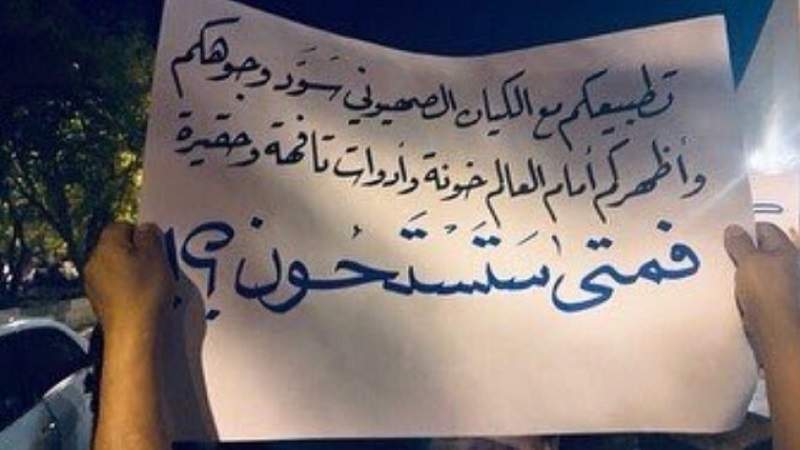 تطبيعكم مع الكيان الصهيوني سَوَّد وجوهكم
وأظهركم أمام العالم خونة وأدوات تافهة وحقيرة
فمتى ستَسْتَحُون؟!